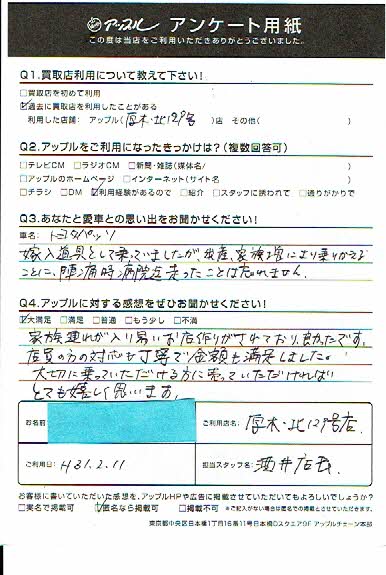 アップル アンケート用紙
この度は当店をご利用いただきありがとうございました。
Q1.買取店利用について教えて下さい!
□買取店を初めて利用
☑過去に買取店を利用したことがある
利用した店舗: アップル(厚木・北129号)店 その他( )
Q2.アップルをご利用になったきっかけは?(複数回答可)
□テレビCM □ラジオCM □新聞・雑誌(媒体名/ )
□アップルのホームページ □インターネット(サイト名 )
□チラシ □DM ☑利用経験があるので □紹介 □スタッフに誘われて □通りがかりで
Q3.あなたと愛車との思い出をお聞かせください!
車名: トヨタパッソ
嫁入道具として乗っていましたが、出産、家族増により乗りかえる
ことに、陣痛時病院迄走ったことは忘れません。
Q4.アップルに対する感想をぜひお聞かせください!
☑大満足 □満足 □普通 □もう少し □不満
家族連れが入り易いお店作りがされており、良かったです。
店員の方の対応も丁寧で金額も満足しました。
大切に乗っていただける方に売っていただければ
とても嬉しく思います。
お名前
ご利用店名: 厚木・北129号店
ご利用日: H31.2.11
担当スタッフ名: 酒井店長
お客様に書いていただいた感想を、アップルHPや広告に掲載させていただいてもよろしいでしょうか?
□実名で掲載可 ☑匿名なら掲載可 □掲載不可 ※ご記入がない場合は匿名での掲載とさせていただきます。
東京都中央区日本橋1丁目16番11号日本橋Dスクエア9F アップルチェーン本部